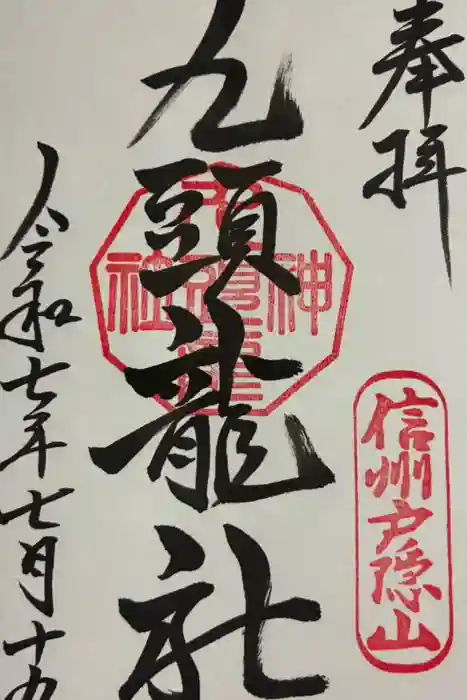 奉拝
信州戸隠山
九頭龍社
令和七年七月十九